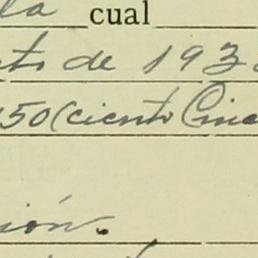 la cual
de 193
50 (ciento Cinc
ión.